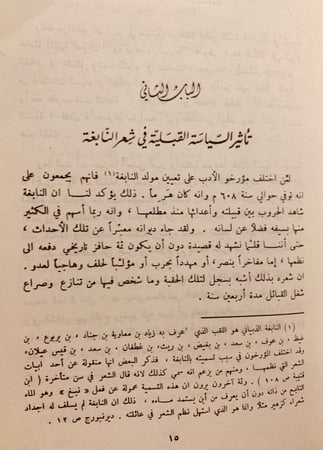 الباب الثاني
تأثير السياسة القبلية في شعر النابغة
لئن اختلف مؤرخو الأدب على تعيين مولد النابغة (١) فانهم يجمعون على
انه توفي حوالي سنة ٦٠٨ م وانه كان هَرِماً . ذلك يؤكد لنا ان النابغة
شاهد الحروب بين قبيلته وأعدائها منذ مطلعها ، وانه ربما أسهم في الكثير
منها بسيفه فضلاً عن لسانه . ولقد جاء ديوانه معبّراً عن تلك الأحداث ،
حتى أننا قلّما نشهد له قصيدة دون أن يكون ثمة حافز تاريخي دفعه الى
نظمها ، إما مفاخراً بنصر ، أو مهدداً بحرب أو مؤلباً لحلف وهاجياً لعدو .
ان شعره بذلك أشبه بسجل لتلك الحقبة وما شخص فيها من تنازع وصراع
شغل القبائل مدة أربعين سنة .
(١) النابغة الذبياني هو اللقب الذي عرف به زياد بن معاوية بن جناد ، بن يربوع ، بن
غيظ ، بن عوف ، بن سعد ، بن بغيض ، بن ريث ، بن غطفان ، بن سعد ، بن قيس عيلان .
وقد اختلف المؤرخون في سبب تسميته بالنابغة . فذكر البعض انها منقولة عن أحد أبيات
الشعر التي نظمها ، ومنهم من يزعم انه سمي كذلك لانه قال الشعر في سن متأخرة ( ابن
قتيبة ص ١٠٨ ) . وثمة آخرون يرون ان هذه التسمية محمولة عن فعل « نبغ » وهو الماء
النابع من ذاته دون أن يعرف من أين يستمد مياهه . ذلك ان النابغة لم يسلف له اجداد
شعراء كزهير مثلا وانما هو الذي استهل نظم الشعر في عائلته . ديرنبورج ص ١٢ .
١٥